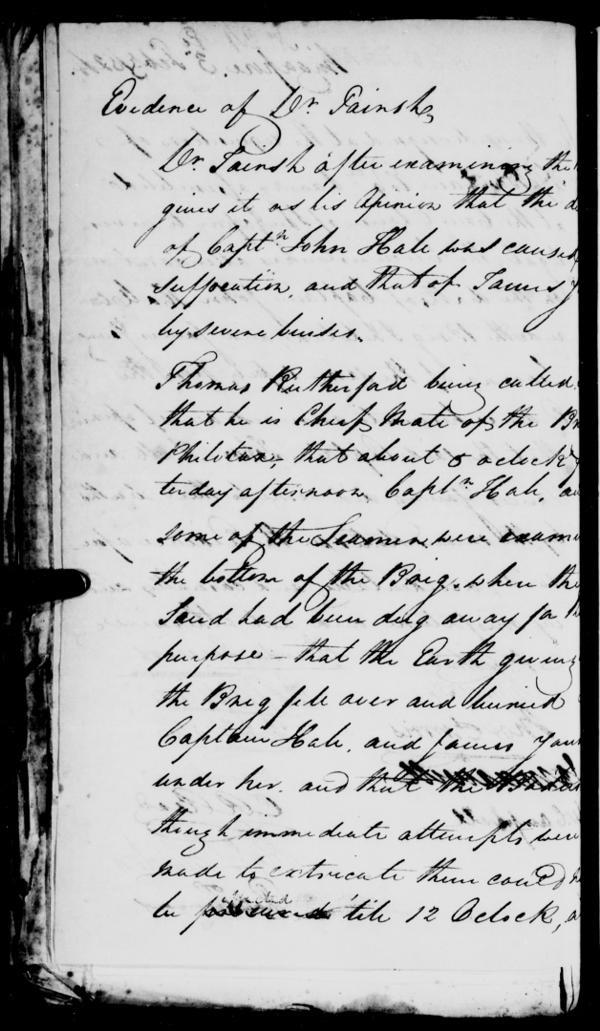 Evidence of Dr. Tainsh,
Dr. Tainsh after examining the
gives it as his Opinion that the d
of Captn John Hale was caused
suffocation, and that of James Y
by severe bruises.
Thomas Rutherford being called
that he is Chief Mate of the Br
that about o'clock
terday afternoon Captn Hale, a
some of the Seamen were exam
the bottom of the Brig, where the
Sand had been dug away for th
purpose - that the Earth giving
the Brig fell over and buried
Captain Hale, and James Youn
under her, and that the
though immediate attempts were
made to extricate them could n
be effected till 12 Oclock, a